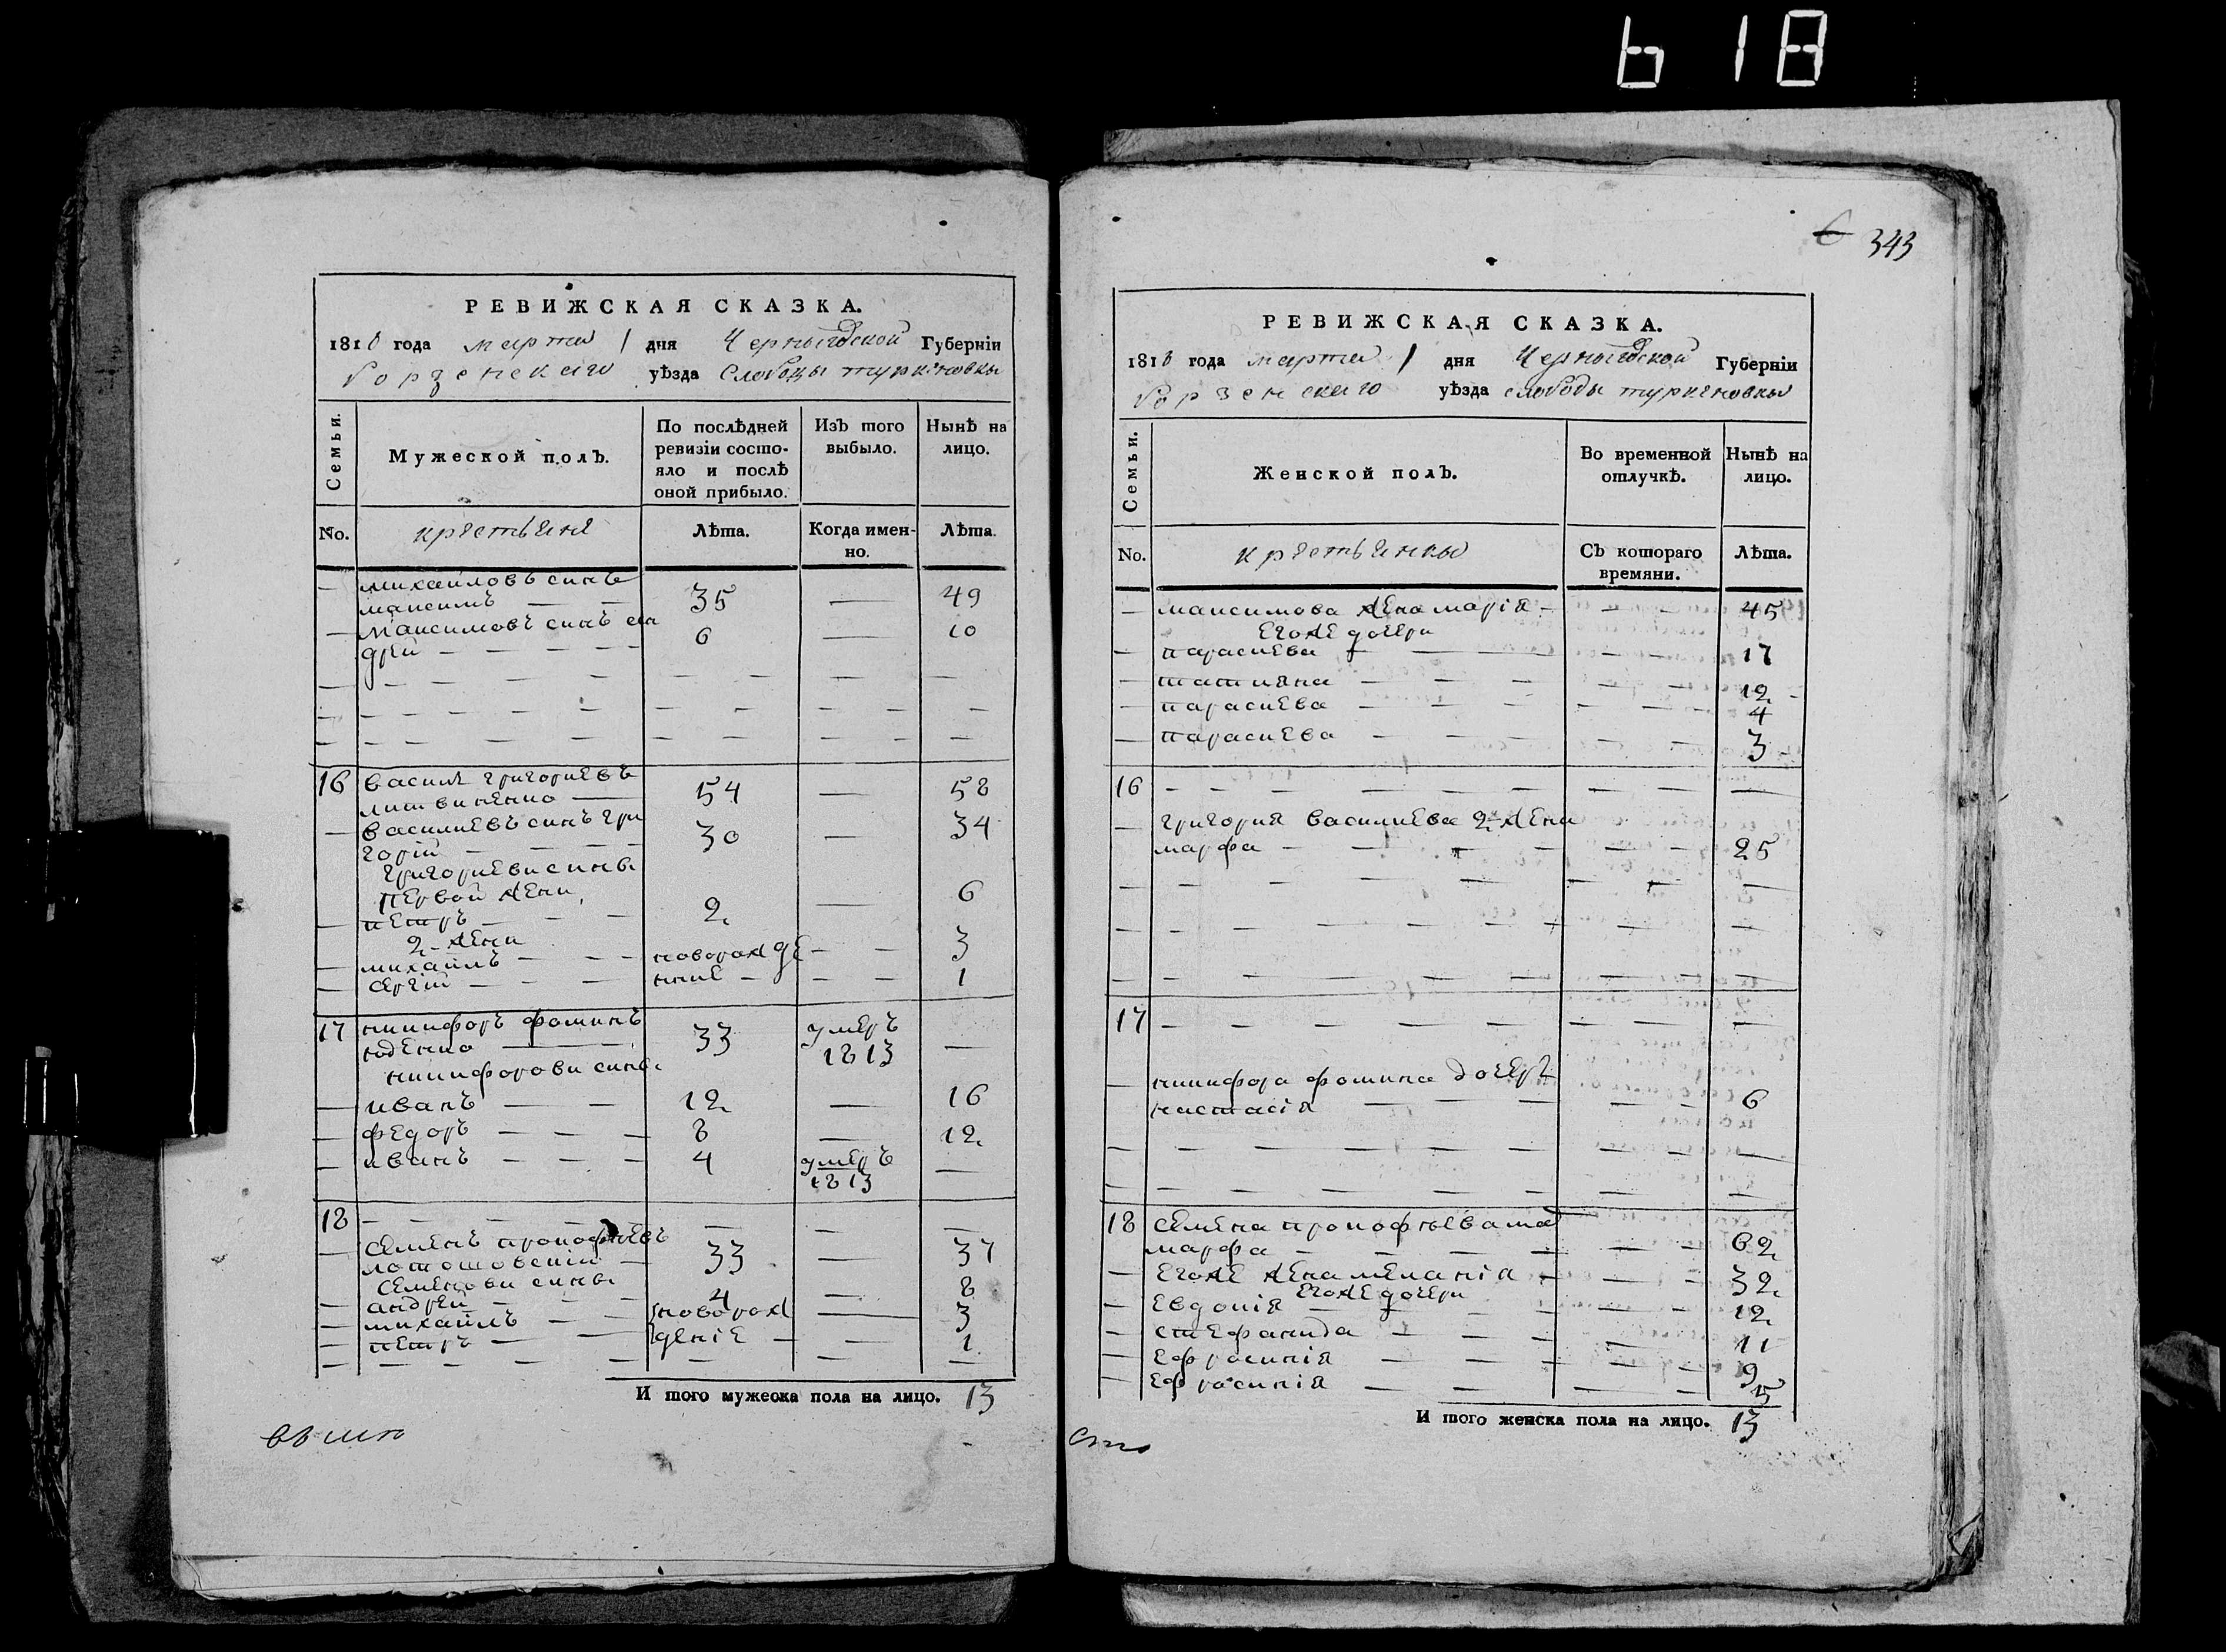 618
РЕВИЖСКАЯ СКАЗКА.
1816 года марта 1 дня Черныговской Губернiи
борзенскаго уѣзда Слободы туркеновки
Семьи.
Мужеской полъ.
По послѣдней ревизiи состояло и послѣ оной прибыло.
Изъ того выбыло.
Нынѣ на лицо.
No. крестьяне Лѣта. Когда именно. Лѣта.
— михайловъ синъ
максимъ — — 35 — 49
— максимовъ синъ
дрей — — — — 6 — 10
— — — — — — — — —
— — — — — — — — —
— — — — — — — — —
16 василь григориевъ
литвиненко — 54 — 58
— василиевъ синъ гри
горiй — — — 30 — 34
григориеви сины
первой жени
— петръ — — 2 — 6
2 жени
— михайлъ — — — новорожде — — 3
— сергiй — — — нние — — — 1
17 никифоръ фоминъ
юденко — 33 умеръ 1813 —
никифорови сины
— иванъ — — 12 — 16
— федоръ — — — 8 — 12
— иванъ — — — 4 умеръ 1813 —
18 — — — — — — —
— семенъ прокофиевъ
— 33 — 37
семенови сины
— андрей — — — 4 — 8
— михайлъ — — новорож — 3
— петръ — — денiе — — 1
— — — — — — — — —
И того мужеска пола на лицо. 13
343
РЕВИЖСКАЯ СКАЗКА.
1816 года марта 1 дня Черныговской Губернiи
борзенскаго уѣзда слободы туркеновки
Семьи.
Женской полъ.
Во временной отлучкѣ.
Нынѣ на лицо.
No. крестьянки Съ котораго времяни. Лѣта.
— максимова жена марiя — — — 45
егоже дочери
— параскева — — — — 17
— татияна — — — — — 12
— параскева — — — — — 4
— параскева — — — — — 3
16 — — — — — — — —
— григория василиева 2я жена
марфа — — — — — — 25
— — — — — — — — —
— — — — — — — — —
— — — — — — — — —
17 — — — — — — — —
— никифора фомина дочеръ
настасiя — — — — — 6
— — — — — — — — —
— — — — — — — — —
18 семена прокофиева ма
марфа — — — — — — 62
— егоже жена меланiя — — — 32
егоже дочери
— евдокiя — — — — — 12
— стефанида — — — — — 11
— ефросинiя — — — — — 9
— ефросинiя — — — — — 5
И того женска пола на лицо. 13